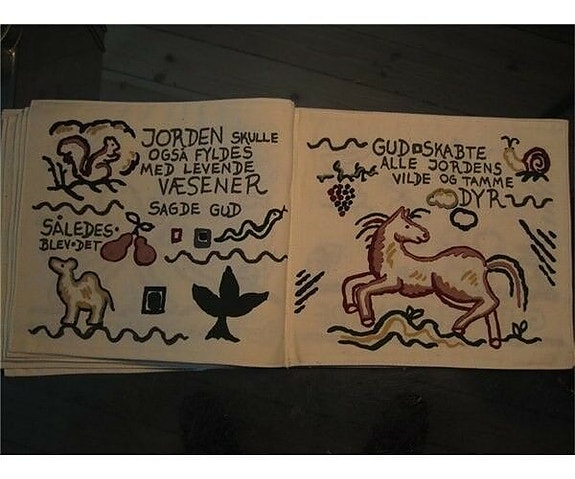 JORDEN SKULLE
OGSÅ FYLDES
MED LEVENDE
VÆSENER
SAGDE GUD
SÅLEDES·
BLEV·DET
GUD SKABTE
ALLE JORDENS
VILDE OG TAMME
DYR